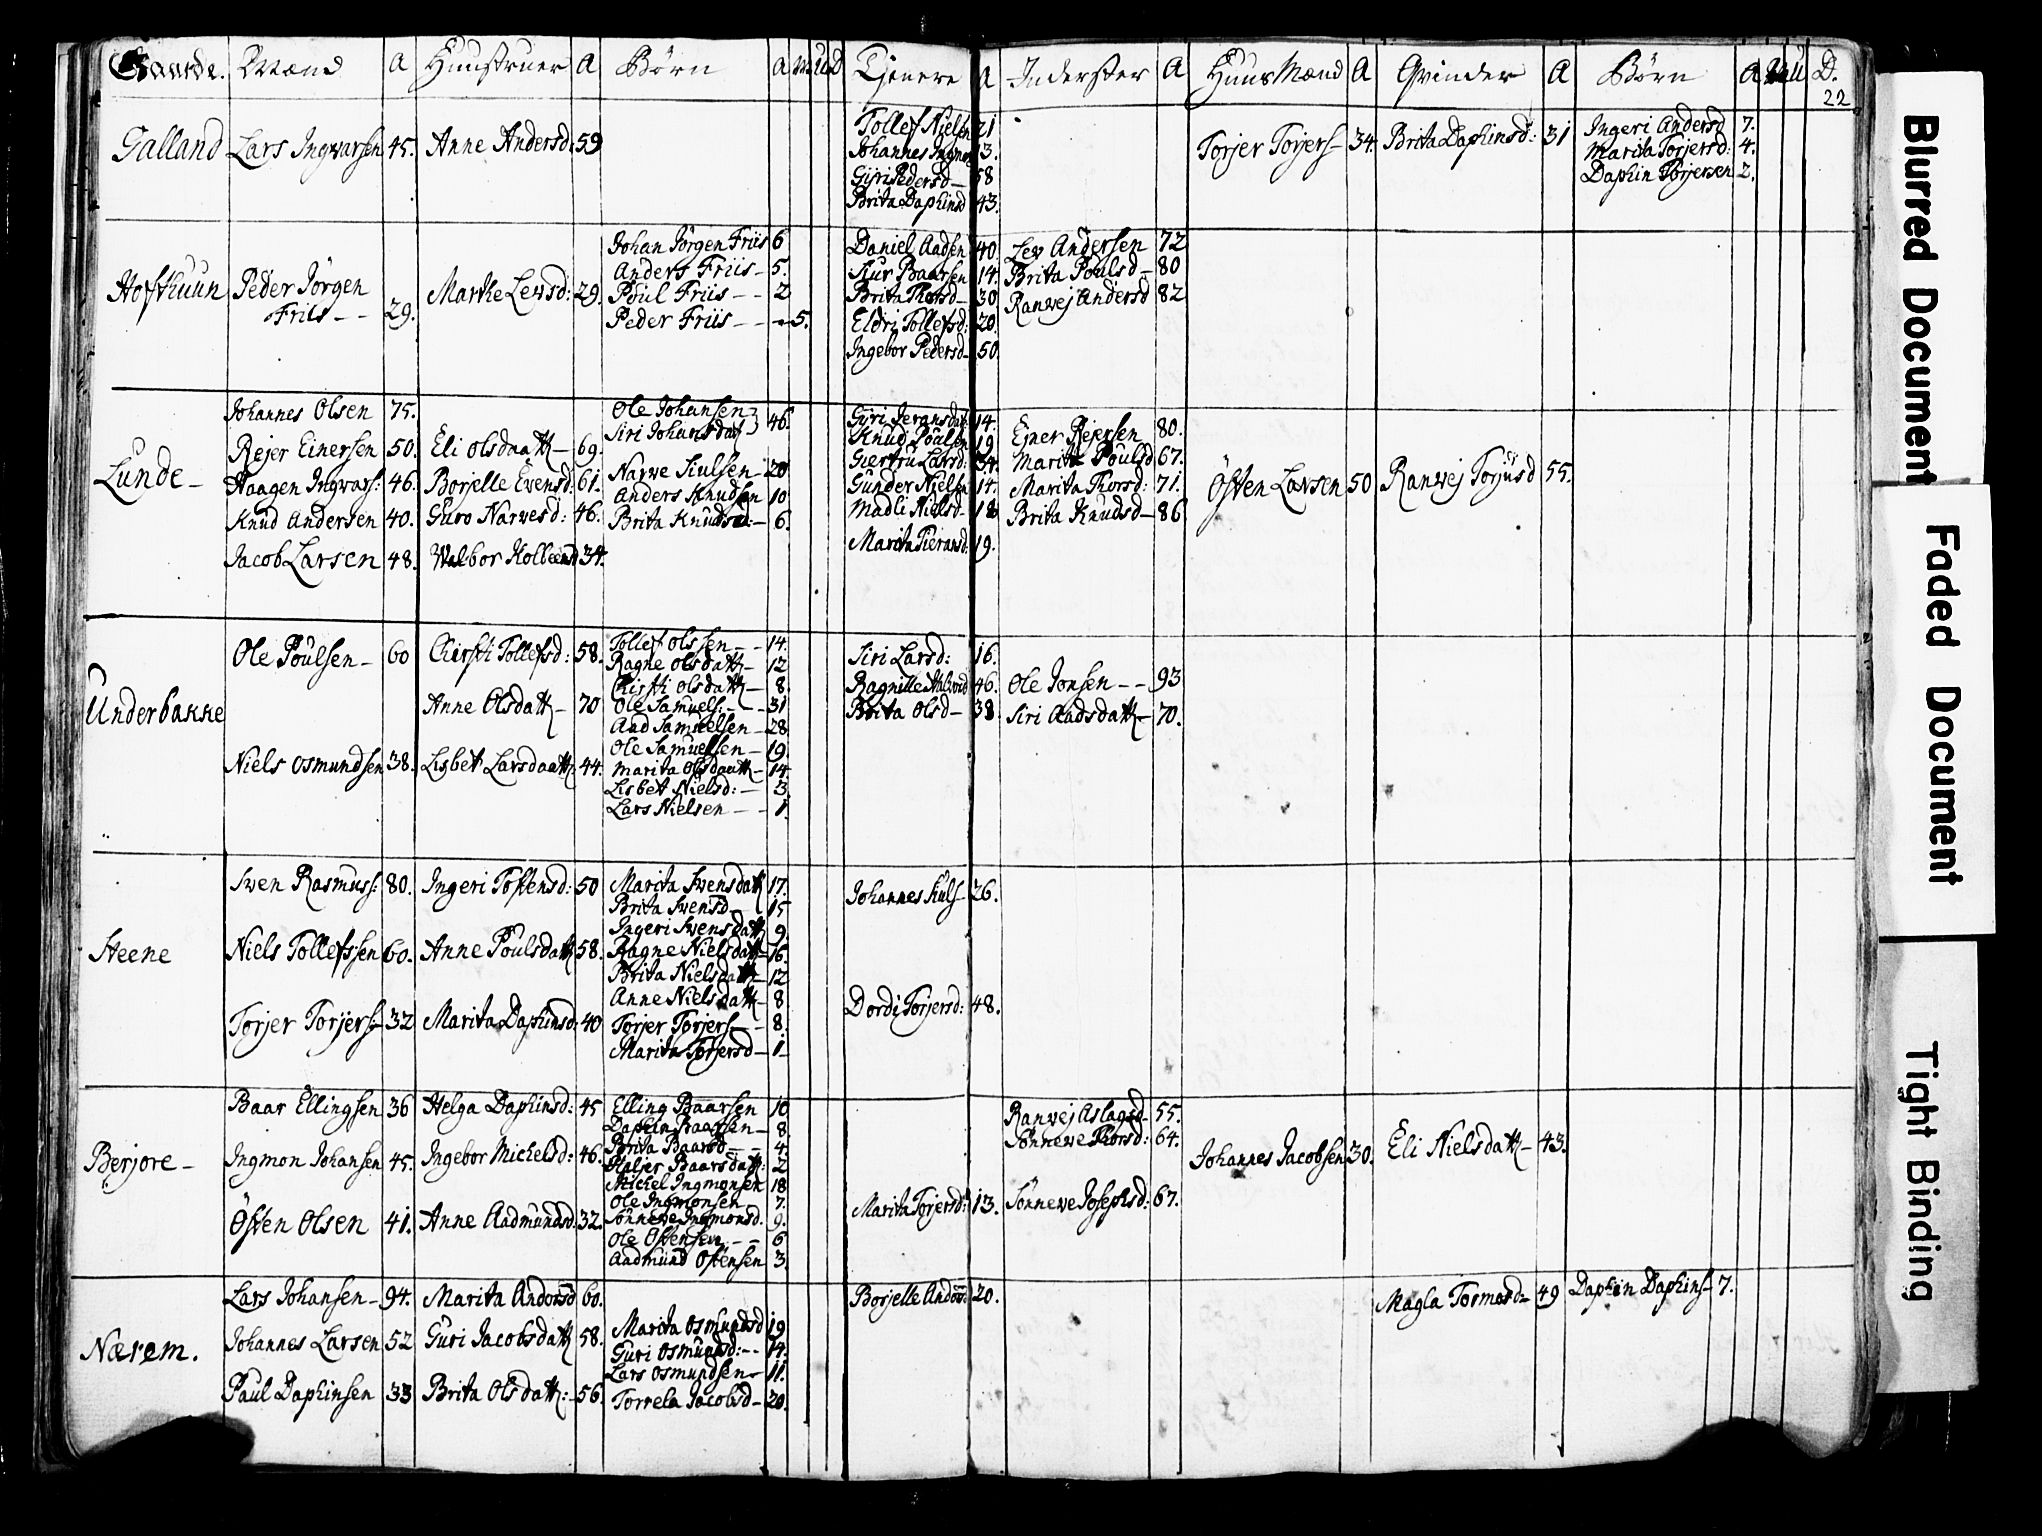 Gaarde. Mænd A Huustruer A Börn A M U D Tjenere A Inderster A Huus Mænd A Qvinder A Börn A M U D.
22
Galland Lars Ingvarsen 45. Anne Andersd 59
Tollef Nielsen 21
Johannes Ingmon 13.
Giri Pedersd 58
Brita Daphinsd 43.
Torjer Torjers 34. Brita Daphinsd: 31
Ingeri Andersd 7.
Marita Torjersd: 4.
Daphin Torjersen 2.
Hofthuun Peder Jörgen
Friis 29. Marthe Lewsd: 29.
Johan Jörgen Friis 6
Anders Friis 5.
Poul Friis 2
Peder Friis 5.
Daniel Aadsen 40.
Siur Baarsen 14.
Brita Thorsd 30.
Eldri Tollefsd: 20.
Ingebor Pedersd 50.
Lev Andersen 72
Brita Poulsd 80
Ranvej Andersd 82
Lunde
Johannes Olsen 75.
Rejer Einersen 50. Eli Olsdaatt 69.
Haagen Ingvars: 46. Borjelle Evensd: 61.
Knud Andersen 40. Guro Narvesd: 46.
Jacob Larsen 48. Walbor 34.
Ole Johansen
Siri Johansdat 46.
Narve Siulsen 20
Anders Knudsen 10
Brita Knudsd: 6.
Giri 14.
Knud Poulsen 19
Giertru Larsd: 34.
Gunder Nielsen 14.
Madli Nielsd 18
Marita 19.
Ejner Rejersen 80.
Marita Poulsd 67.
Marita Thorsd: 71.
Brita Knudsd 86
Östen Larsen 50 Ranvej Torjusd 55.
Underbakke
Ole Poulsen 60 Chirsti Tollefsd: 58.
Anne Olsdatt 70
Niels Osmundsen 38. Lisbet Larsdaatt 44.
Tollef Olssen 14.
Ragne Olsdatt 12
Chirsti Olsdatt 8.
Ole Samuels: 31
Aad Samuelsen 28
Ole Samuelsen 19.
Marita Olsdaatt 14
Lisbet Nielsd: 3.
Lars Nielsen 1.
Siri Larsd: 16.
Ragnille 46.
Brita Olsd 38
Ole Jonsen 93
Siri Aadsdatt 70.
Steene
Swen Rasmuss: 80. Ingeri Tostensd: 50
Niels Tollefssen 60. Anne Poulsdatt 58.
Torjer Torjers: 32 Marita Daphinsd: 40
Marita Swensdatt 17.
Brita Swensd 15
Ingeri Swensdatt 9.
Ragne Nielsdatt 16.
Brita Nielsdatt 12
Anne Nielsdatt 8
Torjer Torjers 8.
Marita Torjersd 1
Johannes Siuls 26.
Dordi Torjersd: 48.
Berjore
Baar Ellingsen 36 Helga Daphinsd: 45
Ingmon Johansen 45. Ingebor Michelsd: 46.
Östen Olsen 41. Anne Aadmundsd 32.
Elling Baarsen 10
Daphin Baarsen 8
Brita Baarsd 4.
Baarsdatt: 2
Michel Ingmonsen 18
Ole Ingmonsen 7.
Sönneve Ingmonsd. 9.
Ole Östensen 6
Aadmund Östensen 3.
Marita Torjersd: 13.
Ranvej Aslagsd 55.
Sönneve Thorsd: 64.
Sönneve Josephsd: 67.
Johannes Jacobsen 30. Eli Nielsdatt 43.
Nærem.
Lars Johansen 94. Marita Andorsd 60.
Johannes Larsen 52 Guri Jacobsdatt 58.
Paul Daphinsen 33 Brita Olsdatt: 56.
Marita Osmundsd 19
Guri Osmundsd: 14.
Lars Osmundsen 11.
Torrela Jacobsd 20.
Borjelle Andors: 20.
Magla Tormodsd 49 Daphin Daphins 7.
Blurred Document
Faded Document
Tight Binding